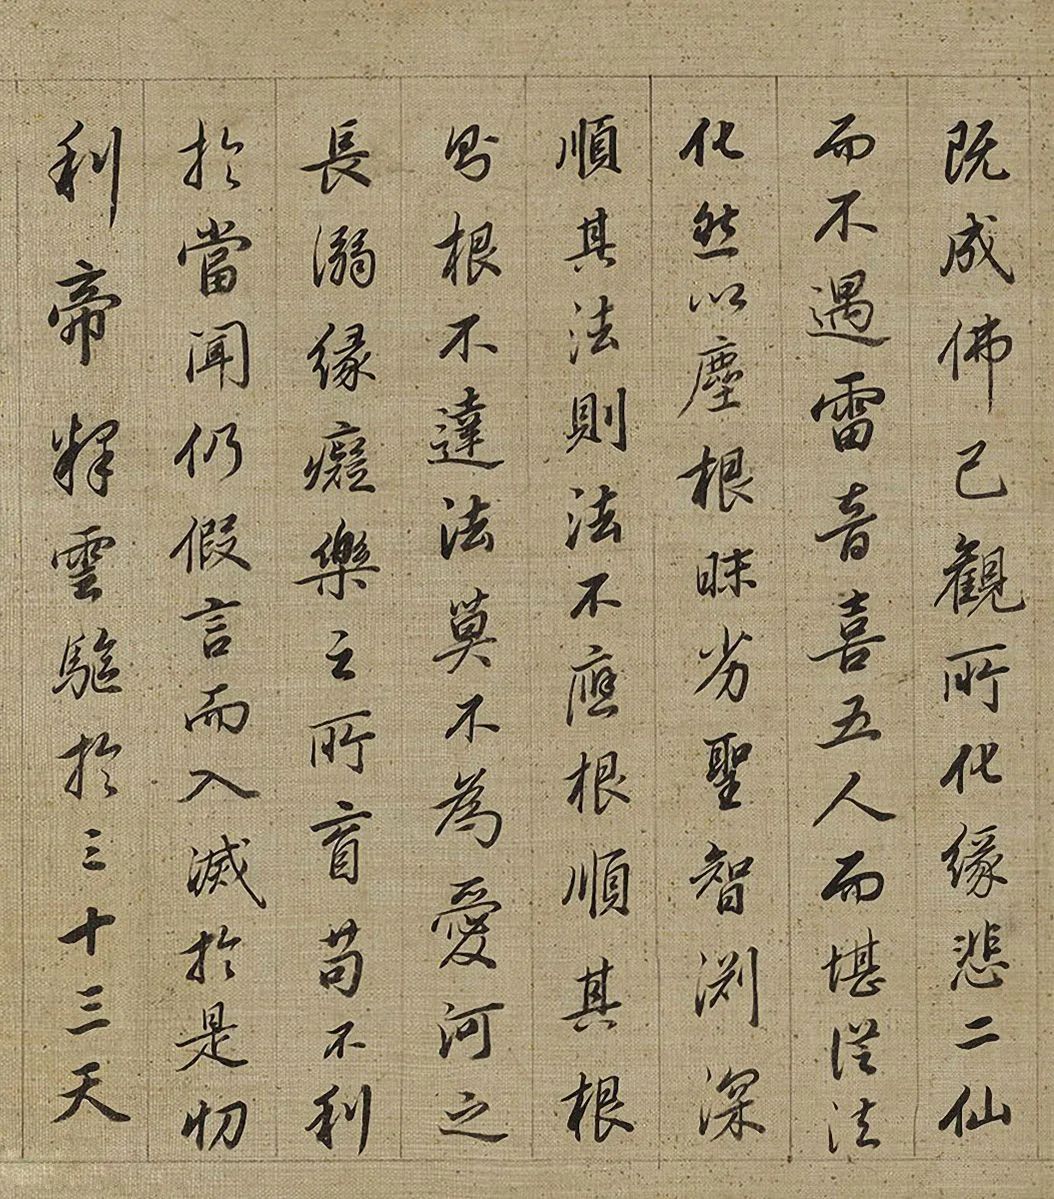 既成佛已觀所化緣悲二仙
而不遇雷音喜五人而堪從法
化然以塵根昧劣聖智渊深
順其法則法不應根順其根
則根不達法莫不為愛河之
長溺緣癡樂之所盲苟不利
於當聞仍假言而入滅於是忉
利帝釋雲驅於三十三天